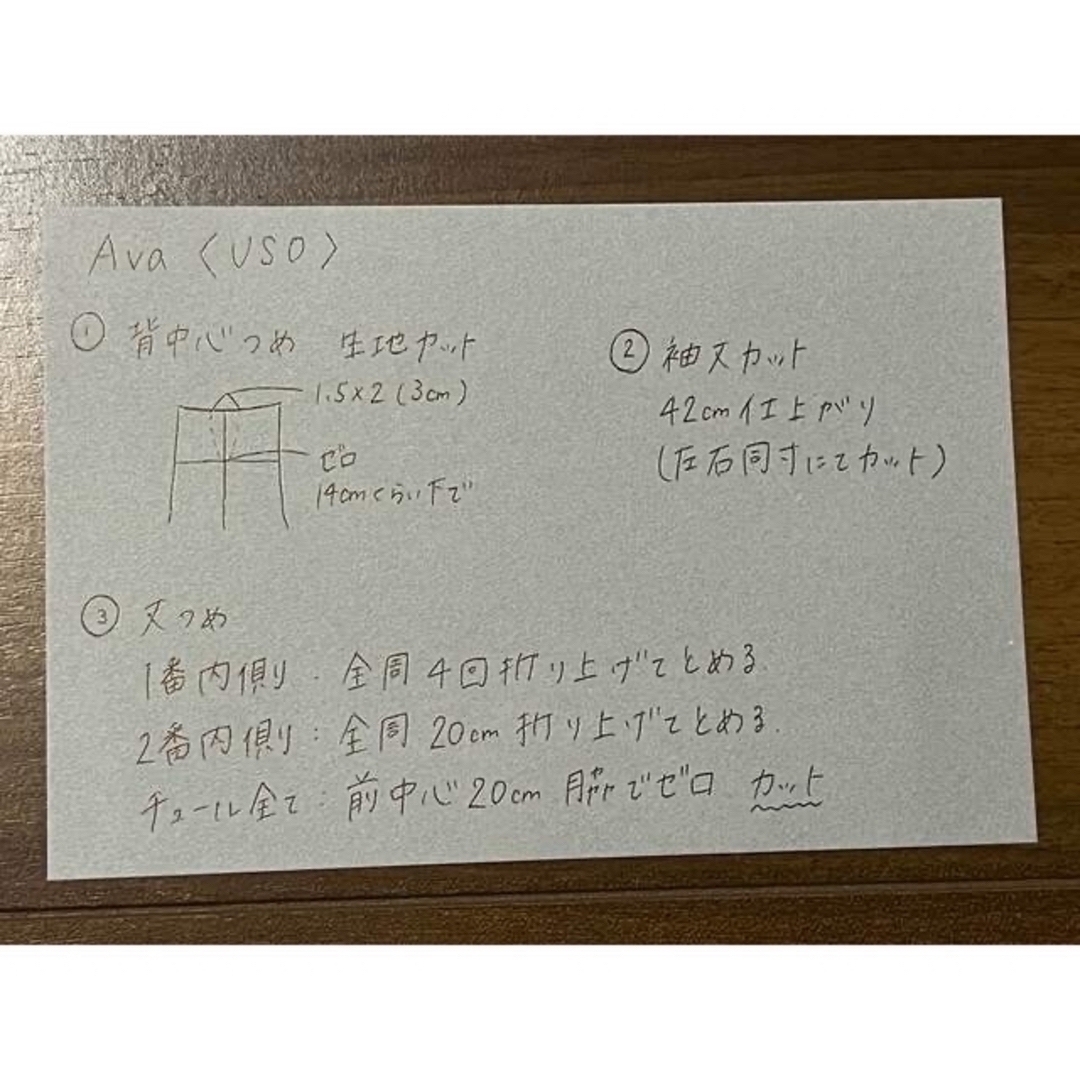 Ava 〈USO〉
① 背中心つめ 生地カット
1.5×2 (3cm)
ゼロ
14cmくらい下で
② 袖丈カット
42cm仕上がり
(左右同寸にてカット)
③ 丈つめ
1番内側 : 全周 4回折り上げてとめる.
2番内側 : 全周 20cm 折り上げてとめる.
チュール全て : 前中心20cm 脇でゼロ カット